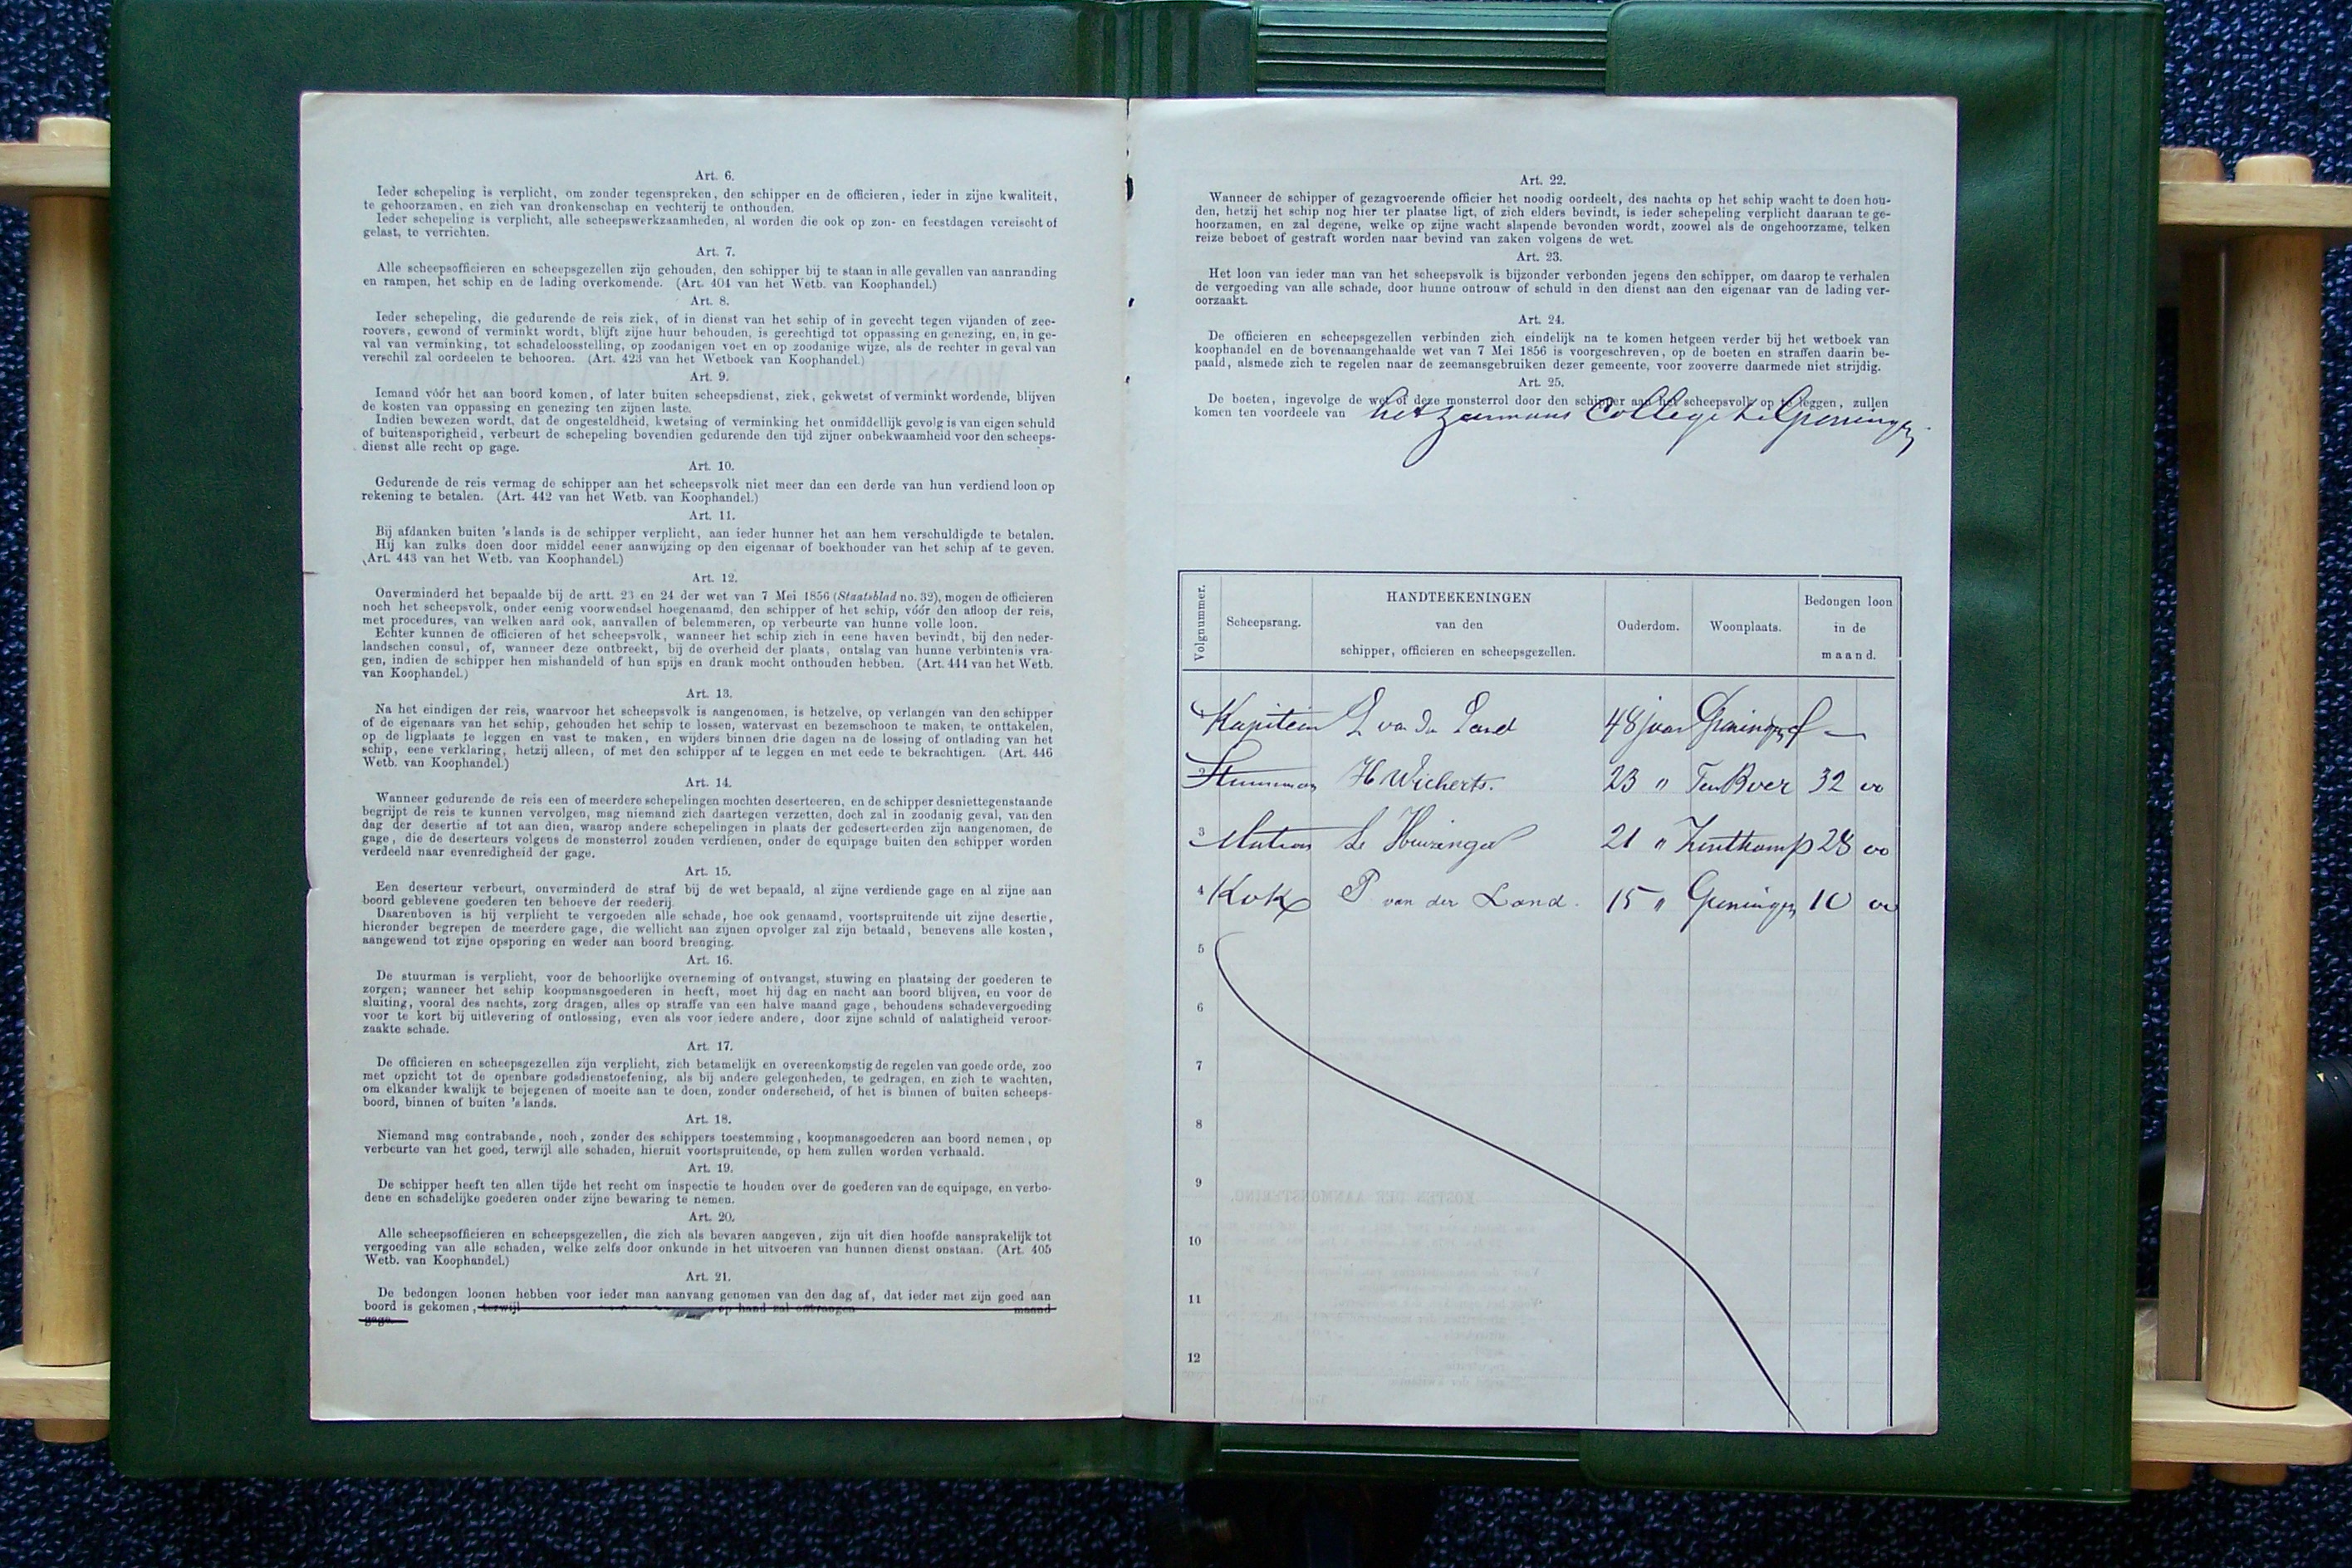 Art. 6.
Ieder schepeling is verplicht, om zonder tegenspreken, den schipper en de officieren, ieder in zijne kwaliteit,
te gehoorzamen, en zich van dronkenschap en vechterij te onthouden.
Ieder schepeling is verplicht, alle scheepswerkzaamheden, al worden die ook op zon- en feestdagen vereischt of
gelast, te verrichten.
Art. 7.
Alle scheepsofficieren en scheepsgezellen zijn gehouden, den schipper bij te staan in alle gevallen van aanranding
en rampen, het schip en de lading overkomende. (Art. 404 van het Wetb. van Koophandel.)
Art. 8.
Ieder schepeling, die gedurende de reis ziek, of in dienst van het schip of in gevecht tegen vijanden of zee-
roovers, gewond of verminkt wordt, blijft zijne huur behouden, is gerechtigd tot oppassing en genezing, en, in ge-
val van verminking, tot schadeloosstelling, op zoodanigen voet en op zoodanige wijze, als de rechter in geval van
verschil zal oordeelen te behooren. (Art. 423 van het Wetboek van Koophandel.)
Art. 9.
Iemand vóór het aan boord komen, of later buiten scheepsdienst, ziek, gekwetst of verminkt wordende, blijven
de kosten van oppassing en genezing ten zijnen laste.
Indien bewezen wordt, dat de ongesteldheid, kwetsing of verminking het onmiddellijk gevolg is van eigen schuld
of buitensporigheid, verbeurt de schepeling bovendien gedurende den tijd zijner onbekwaamheid voor den scheeps-
dienst alle recht op gage.
Art. 10.
Gedurende de reis vermag de schipper aan het scheepsvolk niet meer dan een derde van hun verdiend loon op
rekening te betalen. (Art. 442 van het Wetb. van Koophandel.)
Art. 11.
Bij afdanken buiten 's lands is de schipper verplicht, aan ieder hunner het aan hem verschuldigde te betalen.
Hij kan zulks doen door middel eener aanwijzing op den eigenaar of boekhouder van het schip af te geven.
(Art. 443 van het Wetb. van Koophandel.)
Art. 12.
Onverminderd het bepaalde bij de artt. 23 en 24 der wet van 7 Mei 1856 (Staatsblad no. 32), mogen de officieren
noch het scheepsvolk, onder eenig voorwendsel hoegenaamd, den schipper of het schip, vóór den afloop der reis,
met procedures, van welken aard ook, aanvallen of belemmeren, op verbeurte van hunne volle loon.
Echter kunnen de officieren of het scheepsvolk, wanneer het schip zich in eene haven bevindt, bij den neder-
landschen consul, of, wanneer deze ontbreekt, bij de overheid der plaats, ontslag van hunne verbintenis vra-
gen, indien de schipper hen mishandeld of hun spijs en drank mocht onthouden hebben. (Art. 444 van het Wetb.
van Koophandel.)
Art. 13.
Na het eindigen der reis, waarvoor het scheepsvolk is aangenomen, is hetzelve, op verlangen van den schipper
of de eigenaars van het schip, gehouden het schip te lossen, watervast en bezemschoon te maken, te onttakelen,
op de ligplaats te leggen en vast te maken, en wijders binnen drie dagen na de lossing of ontlading van het
schip, eene verklaring, hetzij alleen, of met den schipper af te leggen en met eede te bekrachtigen. (Art. 446
Wetb. van Koophandel.)
Art. 14.
Wanneer gedurende de reis een of meerdere schepelingen mochten deserteeren, en de schipper desniettegenstaande
begrijpt de reis te kunnen vervolgen, mag niemand zich daartegen verzetten, doch zal in zoodanig geval, van den
dag der desertie af tot aan dien, waarop andere schepelingen in plaats der gedeserteerden zijn aangenomen, de
gage, die de deserteurs volgens de monsterrol zouden verdienen, onder de equipage buiten den schipper worden
verdeeld naar evenredigheid der gage.
Art. 15.
Een deserteur verbeurt, onverminderd de straf bij de wet bepaald, al zijne verdiende gage en al zijne aan
boord geblevene goederen ten behoeve der reederij.
Daarenboven is hij verplicht te vergoeden alle schade, hoe ook genaamd, voortspruitende uit zijne desertie,
hieronder begrepen de meerdere gage, die wellicht aan zijnen opvolger zal zijn betaald, benevens alle kosten,
aangewend tot zijne opsporing en weder aan boord brenging.
Art. 16.
De stuurman is verplicht, voor de behoorlijke overneming of ontvangst, stuwing en plaatsing der goederen te
zorgen; wanneer het schip koopmansgoederen in heeft, moet hij dag en nacht aan boord blijven, en voor de
sluiting, vooral des nachts, zorg dragen, alles op straffe van een halve maand gage, behoudens schadevergoeding
voor te kort bij uitlevering of ontlossing, even als voor iedere andere, door zijne schuld of nalatigheid veroor-
zaakte schade.
Art. 17.
De officieren en scheepsgezellen zijn verplicht, zich betamelijk en overeenkomstig de regelen van goede orde, zoo
met opzicht tot de openbare godsdienstoefening, als bij andere gelegenheden, te gedragen, en zich te wachten,
om elkander kwalijk te bejegenen of moeite aan te doen, zonder onderscheid, of het is binnen of buiten scheeps-
boord, binnen of buiten 's lands.
Art. 18.
Niemand mag contrabande, noch, zonder des schippers toestemming, koopmansgoederen aan boord nemen, op
verbeurte van het goed, terwijl alle schaden, hieruit voortspruitende, op hem zullen worden verhaald.
Art. 19.
De schipper heeft ten allen tijde het recht om inspectie te houden over de goederen van de equipage, en verbo-
dene en schadelijke goederen onder zijne bewaring te nemen.
Art. 20.
Alle scheepsofficieren en scheepsgezellen, die zich als bevaren aangeven, zijn uit dien hoofde aansprakelijk tot
vergoeding van alle schaden, welke zelfs door onkunde in het uitvoeren van hunnen dienst onstaan. (Art. 405
Wetb. van Koophandel.)
Art. 21.
De bedongen loonen hebben voor ieder man aanvang genomen van den dag af, dat ieder met zijn goed aan
boord is gekomen, terwijl op hand zal ontvangen maand
gage.
Art. 22.
Wanneer de schipper of gezagvoerende officier het noodig oordeelt, des nachts op het schip wacht te doen hou-
den, hetzij het schip nog hier ter plaatse ligt, of zich elders bevindt, is ieder schepeling verplicht daaraan te ge-
hoorzamen, en zal degene, welke op zijne wacht slapende bevonden wordt, zoowel als de ongehoorzame, telken
reize beboet of gestraft worden naar bevind van zaken volgens de wet.
Art. 23.
Het loon van ieder man van het scheepsvolk is bijzonder verbonden jegens den schipper, om daarop te verhalen
de vergoeding van alle schade, door hunne ontrouw of schuld in den dienst aan den eigenaar van de lading ver-
oorzaakt.
Art. 24.
De officieren en scheepsgezellen verbinden zich eindelijk na te komen hetgeen verder bij het wetboek van
koophandel en de bovenaangehaalde wet van 7 Mei 1856 is voorgeschreven, op de boeten en straffen daarin be-
paald, alsmede zich te regelen naar de zeemansgebruiken dezer gemeente, voor zooverre daarmede niet strijdig.
Art. 25.
De boeten, ingevolge de wet of deze monsterrol door den schipper aan het scheepsvolk op te leggen, zullen
komen ten voordeele van het Zeemans College te Groningen
Volgnummer. Scheepsrang. HANDTEEKENINGEN van den schipper, officieren en scheepsgezellen. Ouderdom. Woonplaats. Bedongen loon in de maand.
Kapitein L van der Land 48 jaar Groningen f —
2 Stuurman H Wicherts. 23 " Ten Boer 32 00
3 Matroos Huizinga 21 " Zoutkamp 28 00
4 Kok P van der Land. 15 " Groningen 10 00
5
6
7
8
9
10
11
12
KOSTEN DER AANMONSTERING.